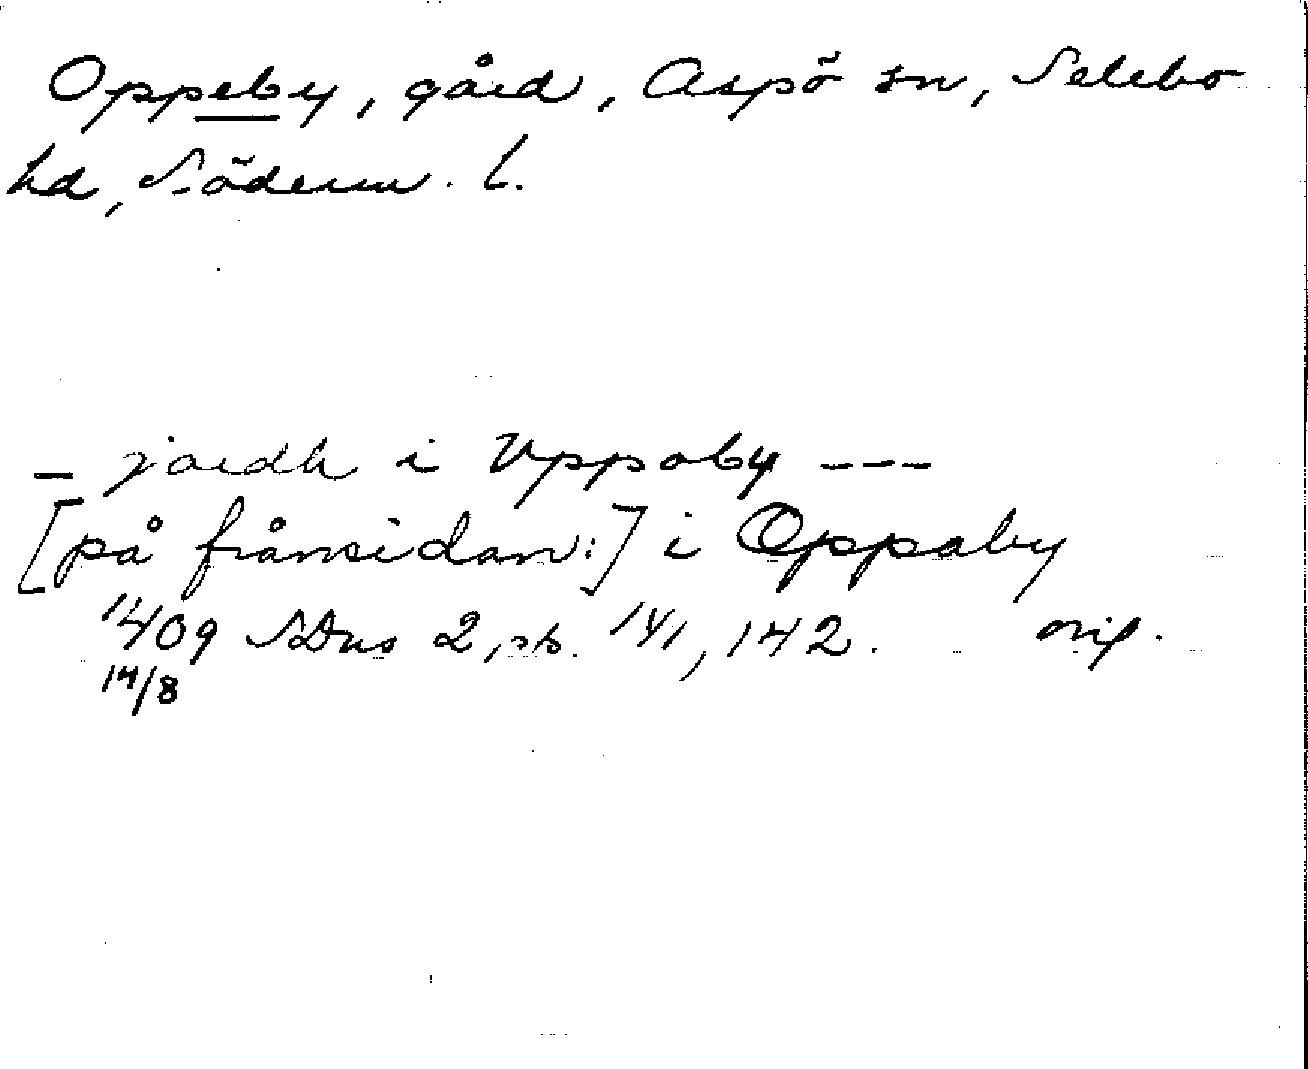 Oppeby, gård, Aspö sn, Selebo
hd, Söderm. l.
– jordh i Vppoby ---
[på frånsidan:] i Oppaby
1409 SDns 2, sb. 141, 142. orig.
14/8